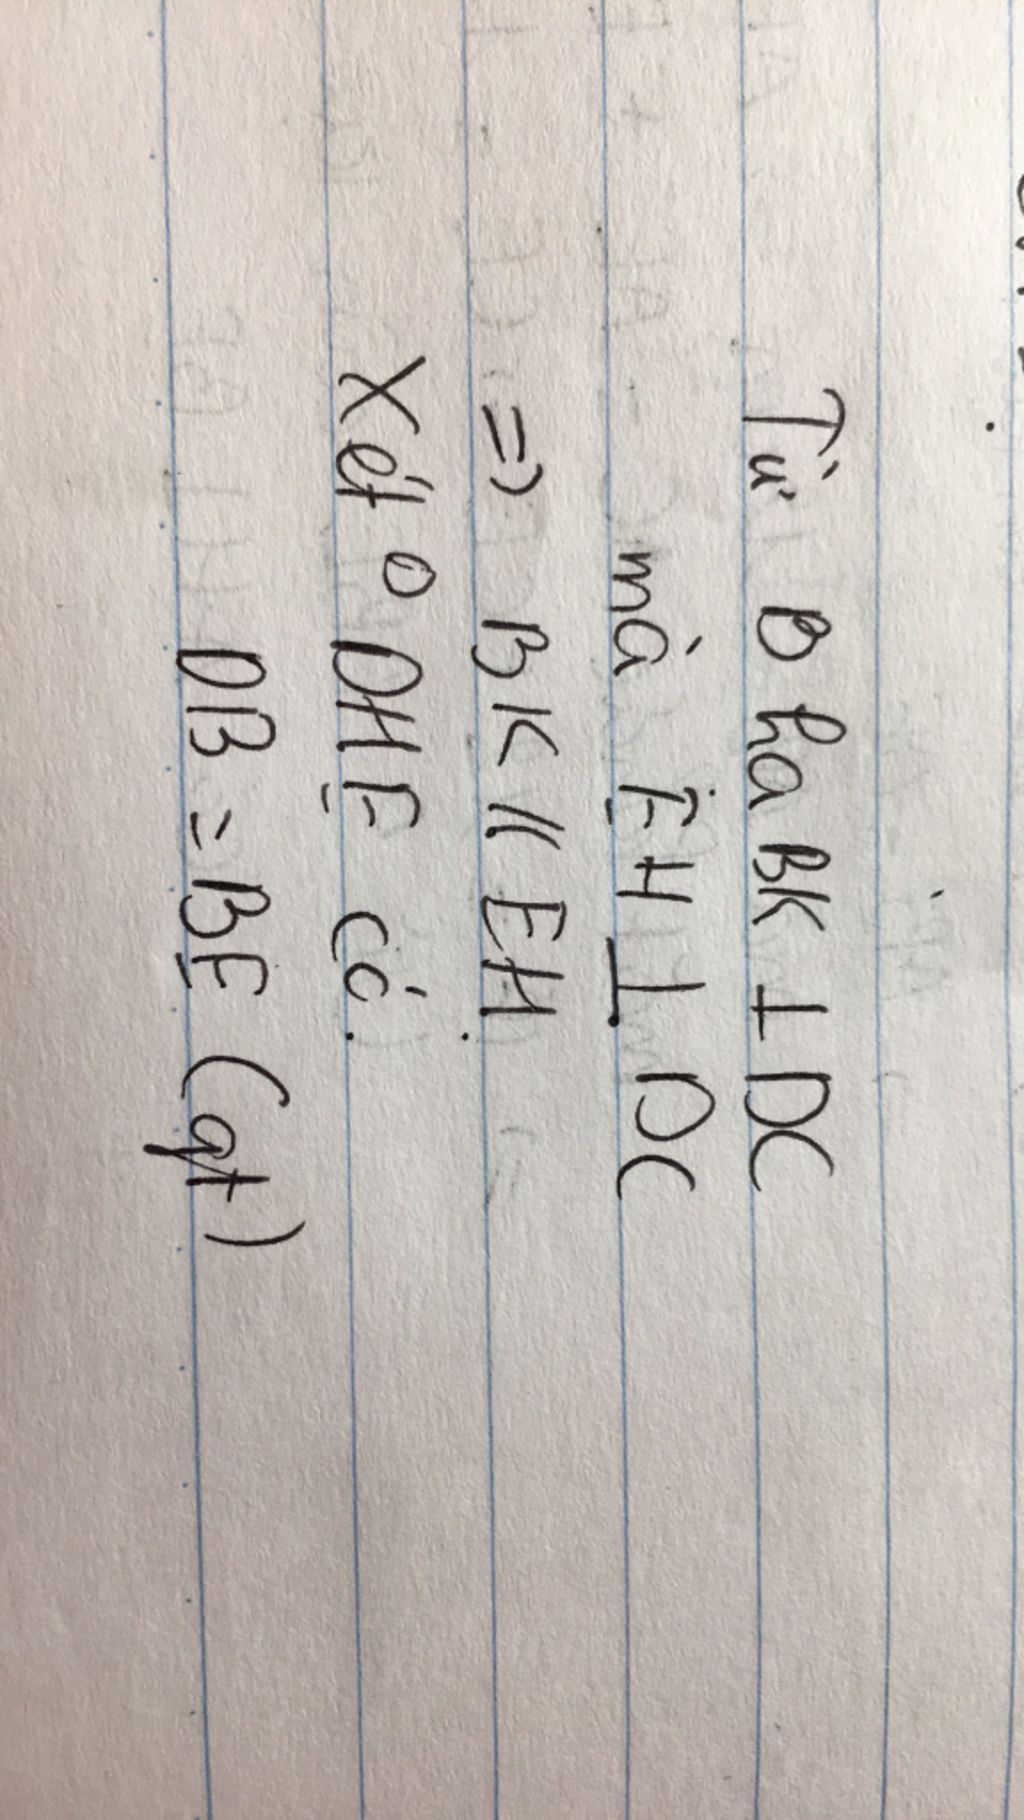 Từ B hạ BK ⊥ DC
mà EH ⊥ DC
=> BK // EH
Xét △ DHE có
DB = BE (gt)